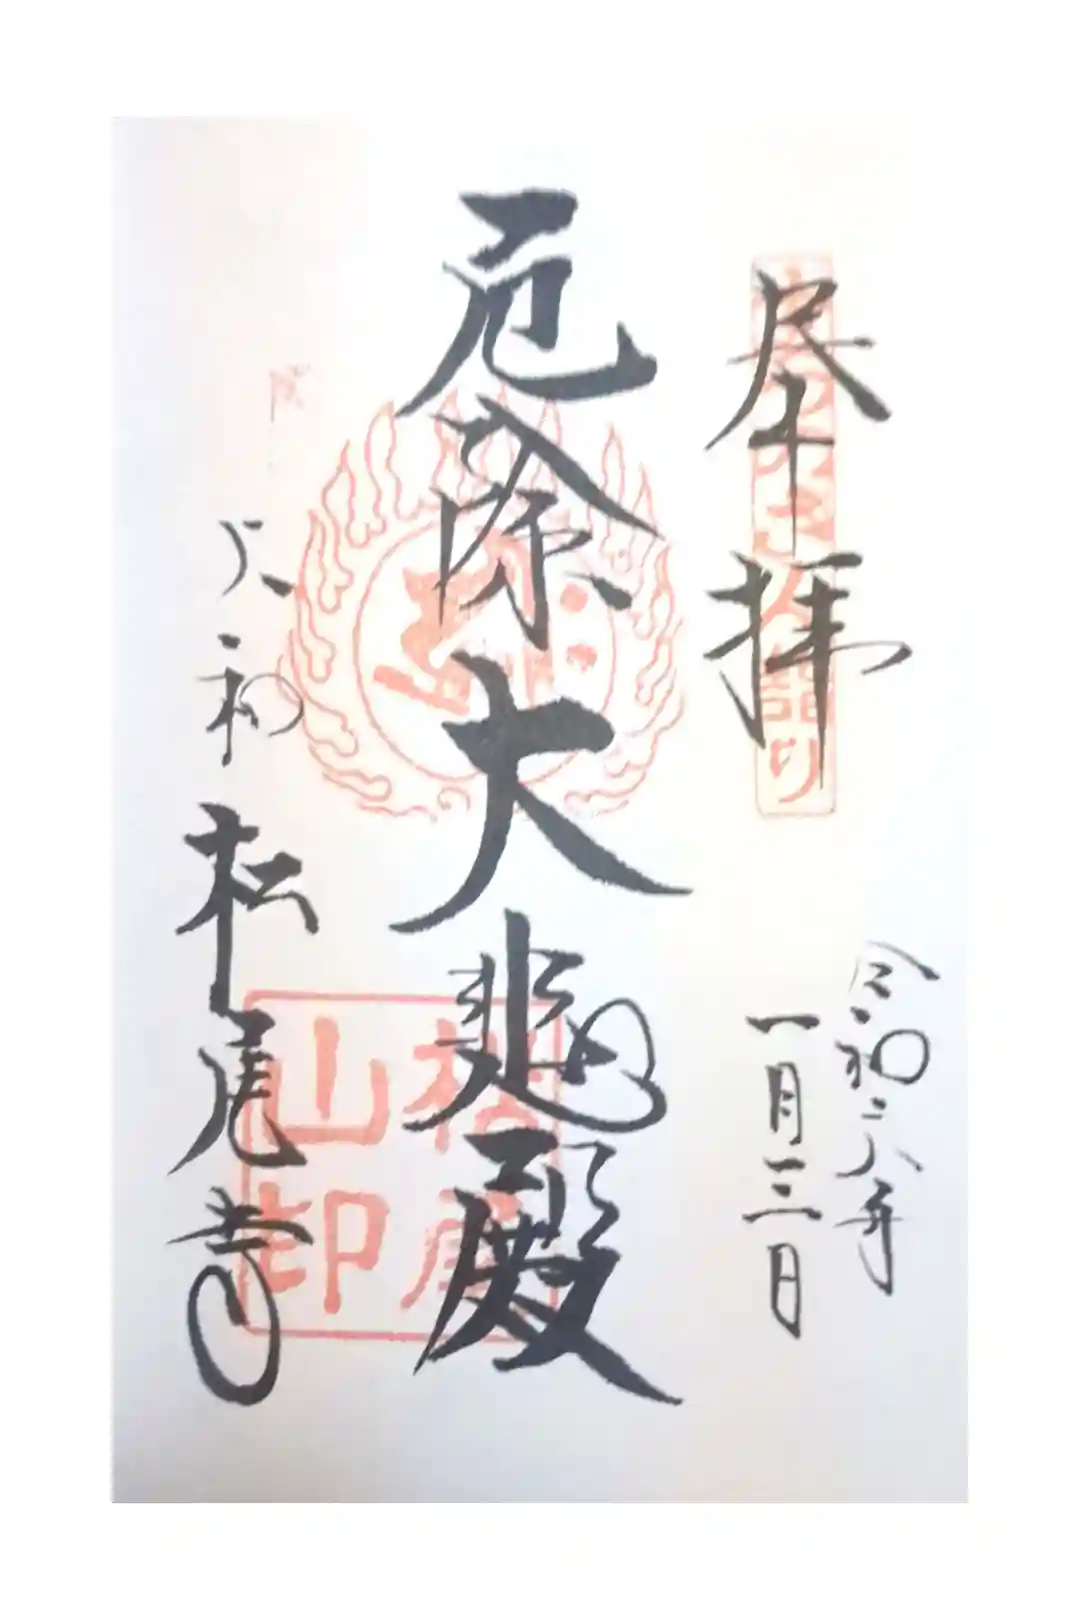 奉拝
詣り
令和六年
一月三日
厄除大悲殿
松尾
山印
大和
松尾寺